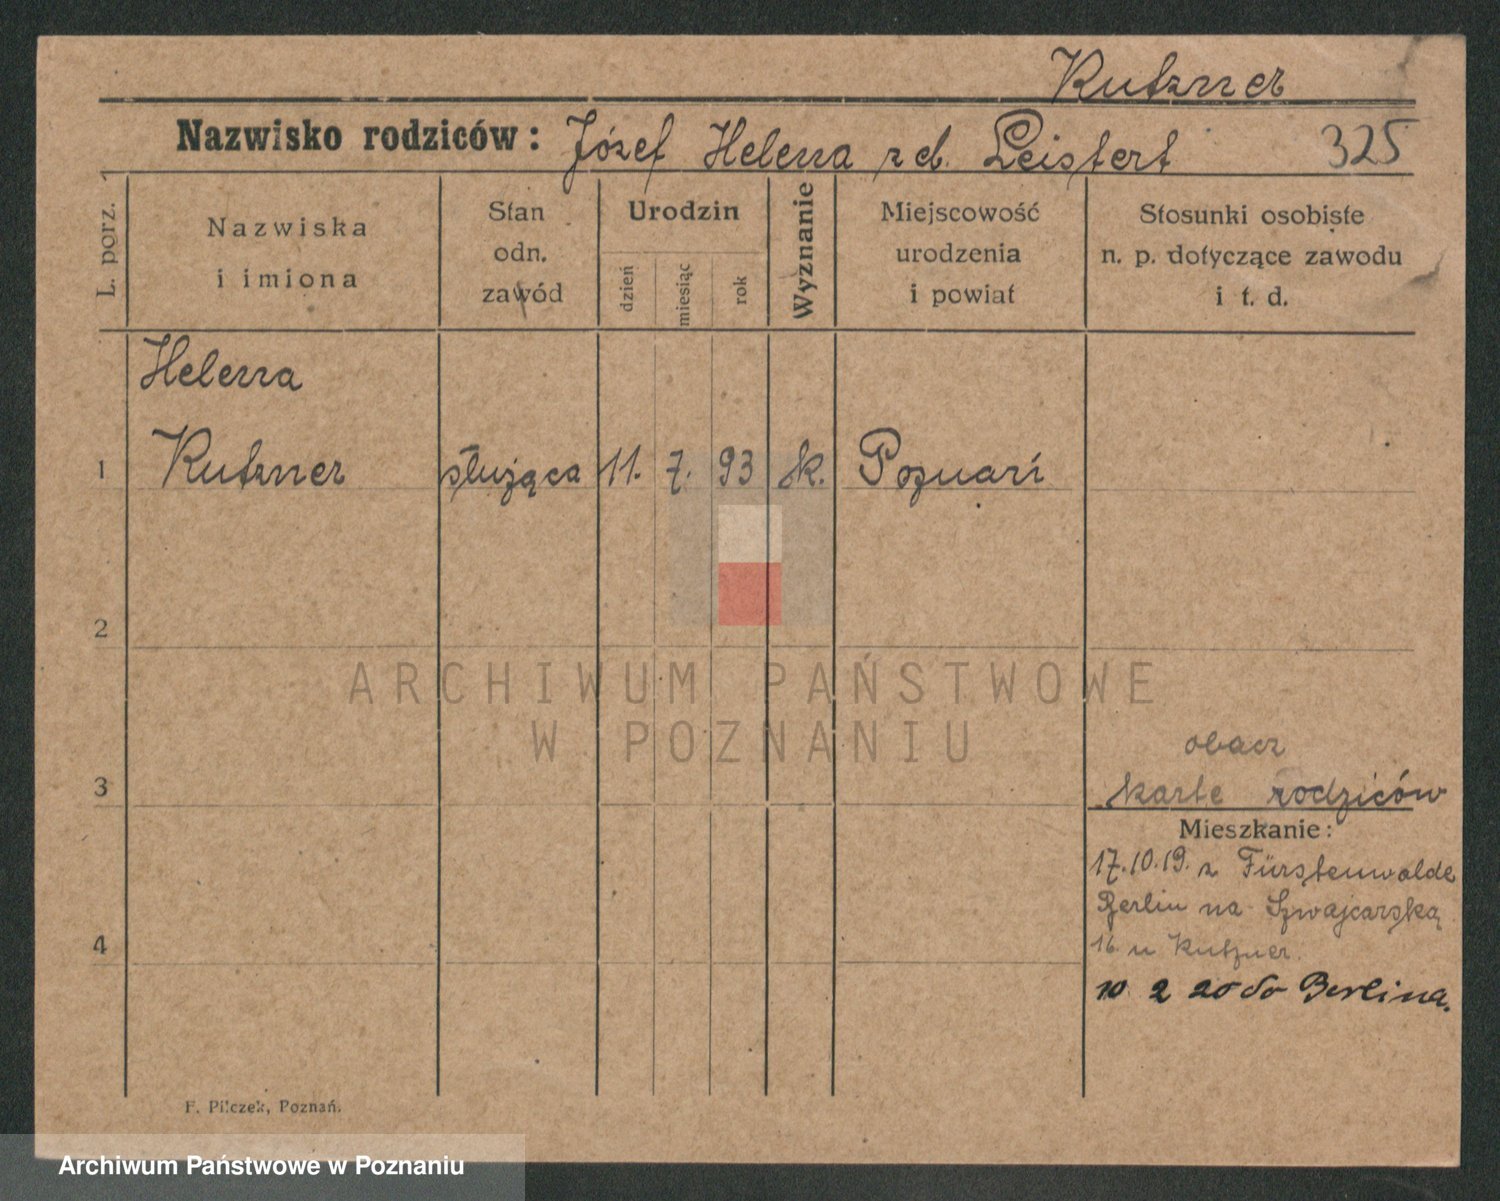 Kutzner
Nazwisko rodziców: Józef Helena z d. Leistert 325
L. porz.
Nazwiska
i imiona
Stan
odn.
zawód
Urodzin
dzień
miesiąc
rok
Wyznanie
Miejscowość
urodzenia
i powiat
Stosunki osobiste
n. p. dotyczące zawodu
i t. d.
Helena
1 Kutzner służąca 11. 7. 93 k. Poznań
2
ARCHIWUM PAŃSTWOWE
W POZNANIU
obacz
3 karte rodziców
Mieszkanie:
17.10.19. z Fürstenwalde
Berlin na Szwajcarską
4 16 u Kutzner.
10 2 20 do Berlina.
F. Pilczek, Poznań.
Archiwum Państwowe w Poznaniu